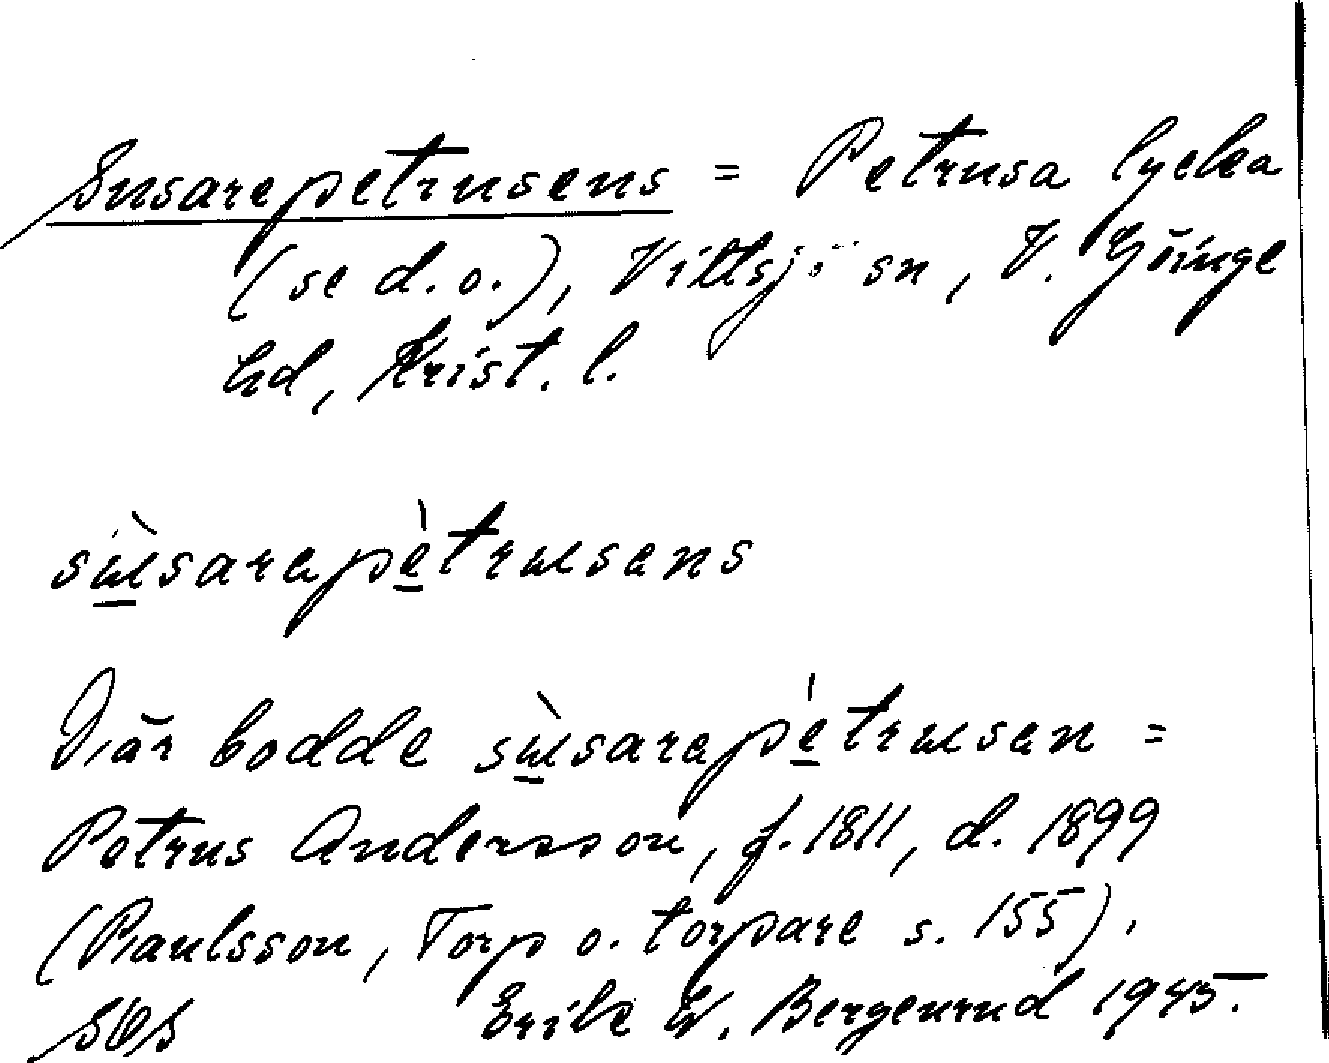 Susarepetrusens = Petrusa lycka
(se d.o.), Vittsjö sn, V. Göinge
hd, Krist. l.
sùsarapètrusans
Där bodde sùsarapètrusan =
Petrus Andersson, f. 1811, d. 1899
(Paulsson, Torp o. torpare s. 155).
Erik W. Bergenrud 1945.